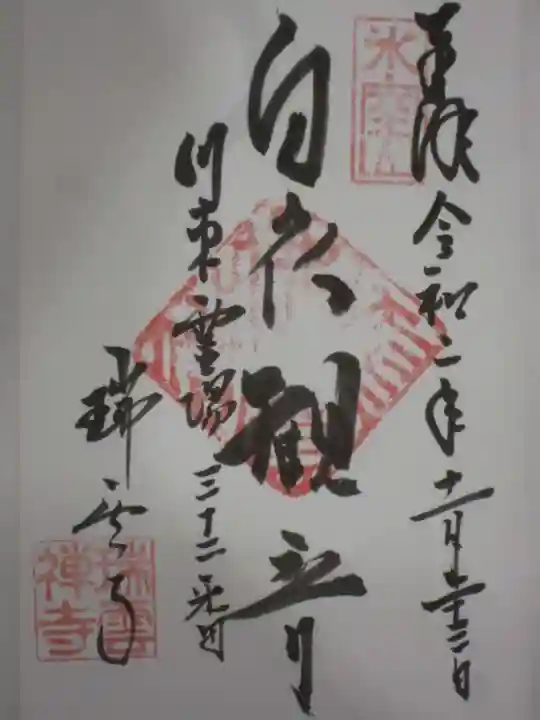 氷室山
奉拝 令和二年十一月二十二日
白衣観音
川東霊場 三十二番
瑞雲寺
瑞雲禅寺